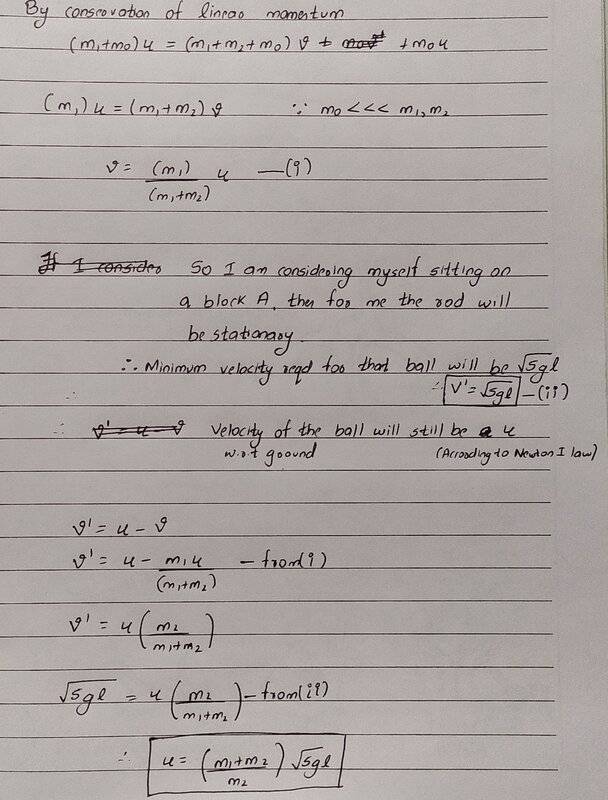 By conservation of linear momentum
(m₁+m₀) u = (m₁+m₂+m₀) v + m₀u
(m₁) u = (m₁+m₂) v ∵ m₀ <<< m₁, m₂
v = (m₁)/(m₁+m₂) u —(i)
I consider So I am considering myself sitting on
a block A, then for me the rod will
be stationary.
∴ Minimum velocity reqd for that ball will be √5gl
∴ V' = √5gl -(ii)
∴ v' = u - v Velocity of the ball will still be u
w.r.t ground (According to Newton I law)
v' = u - v
v' = u - m₁u/(m₁+m₂) - from(i)
v' = u (m₂/m₁+m₂)
√5gl = u (m₂/m₁+m₂) - from(ii)
∴ u = (m₁+m₂/m₂) √5gl